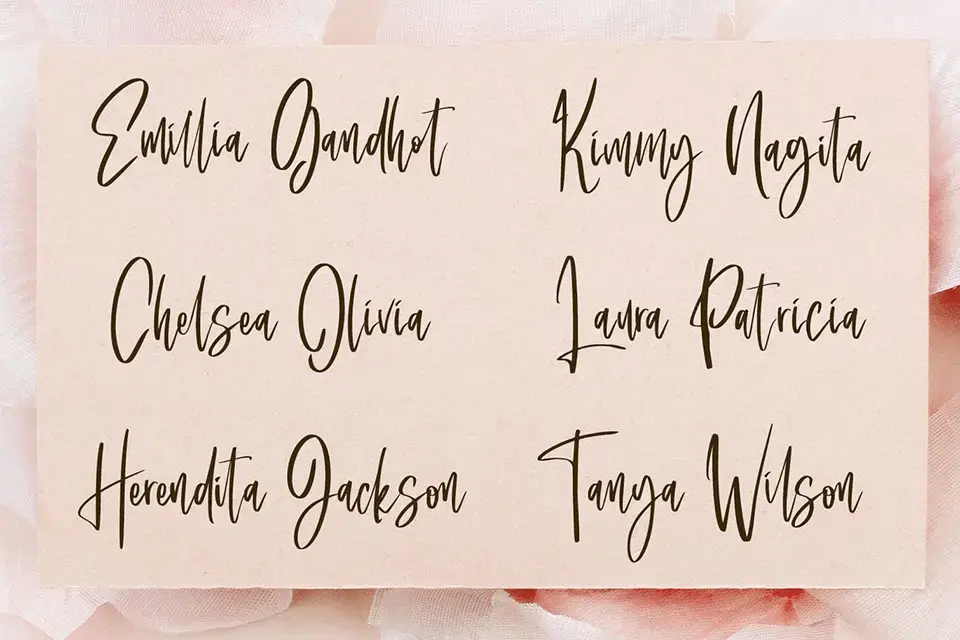 Emillia Gandhot
Kimmy Nagita
Chelsea Olivia
Laura Patricia
Herendita Jackson
Tanya Wilson